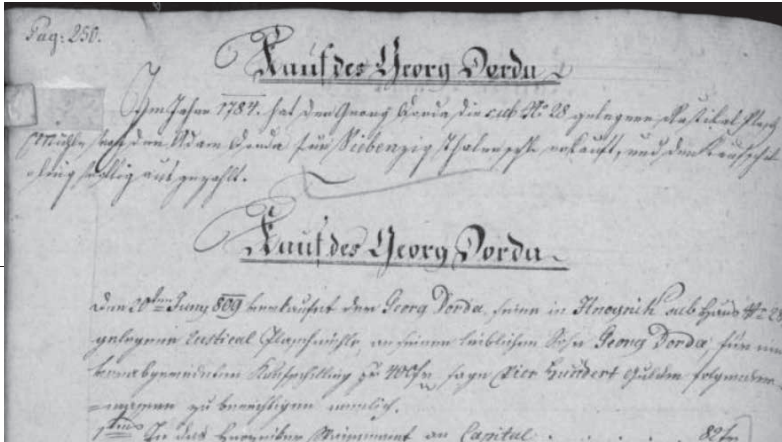 Pag: 250.
Kauf des Georg Dorda
Im Jahre 1784. hat der Georg Dorda die sub N: 28 gelegene Rustikal Flach
Mühle von dem Adam Dorda für Siebenzig Thaler erkauft, und den Kaufschil
ling ausgezahlt.
Kauf des Georg Dorda
Den 20ten Juny 809 verkaufet der Georg Dorda, seine in sub Haus N: 28
gelegene Rustical Flachmühle, an seinen leiblichen Sohn Georg Dorda, für
Kaufschilling zu 400 fr sage Vier Hundert Gulden
zu berichtigen nemlich.
1tens In das an Capital . . . . .